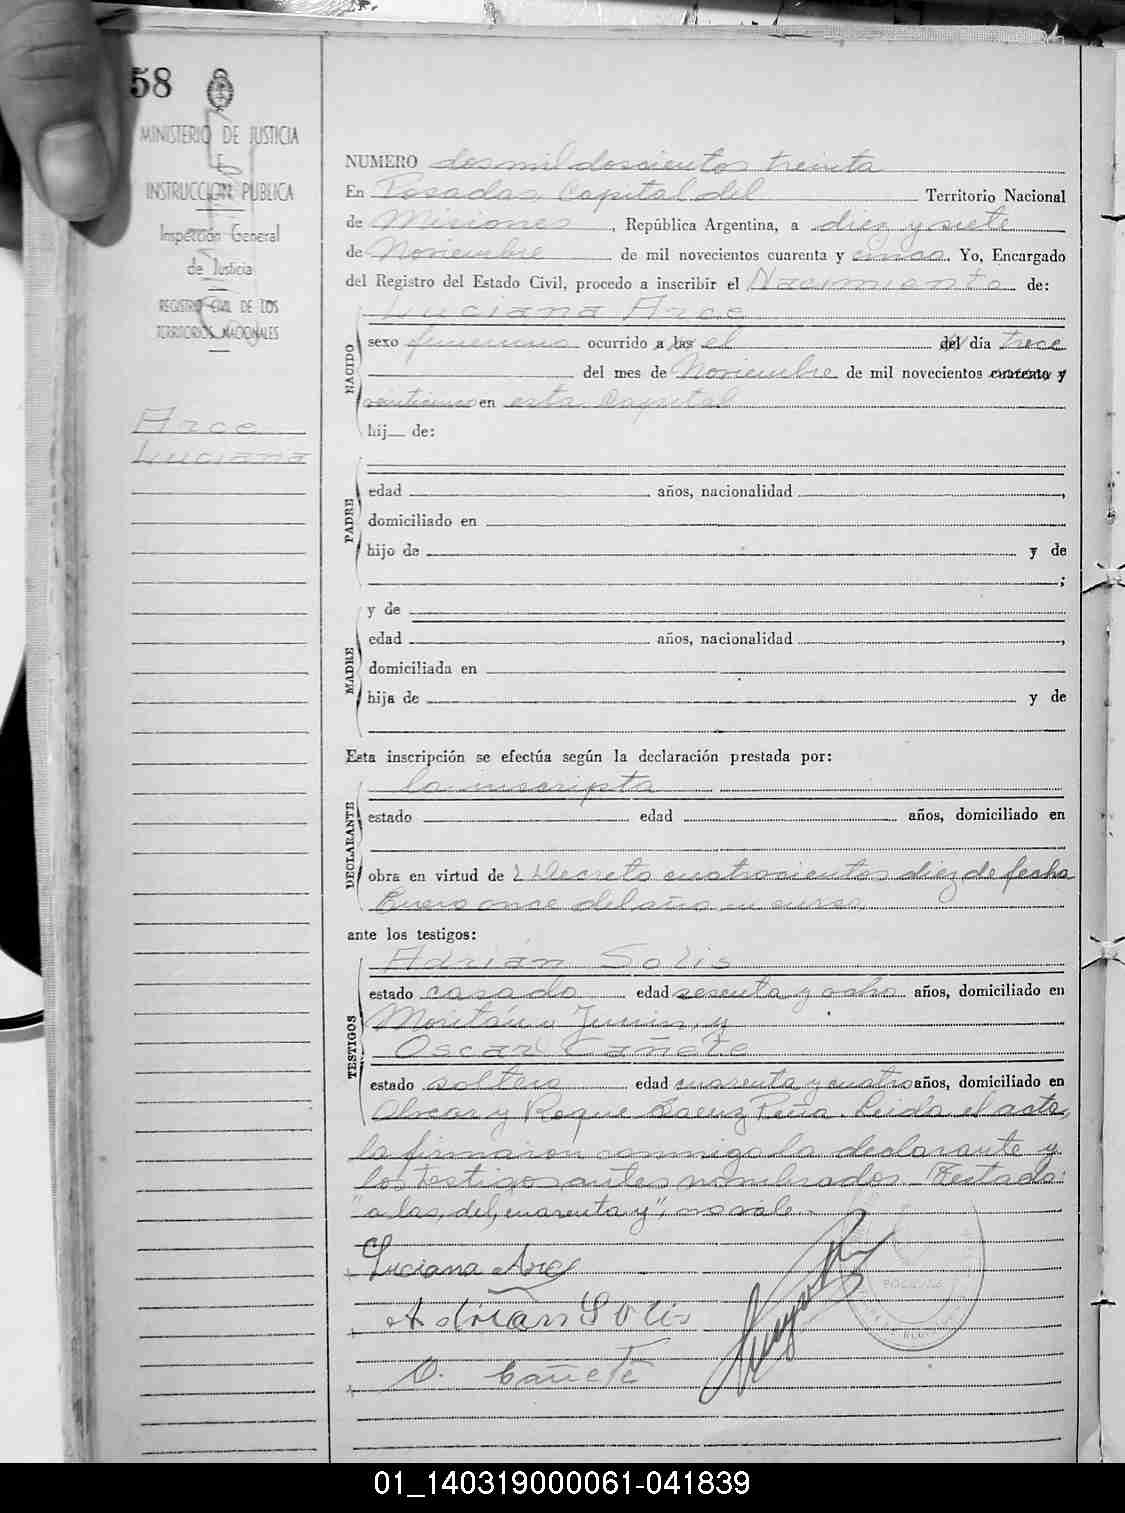 58
MINISTERIO DE JUSTICIA
E
INSTRUCCION PUBLICA
Inspección General
de Justicia
REGISTRO CIVIL DE LOS
TERRITORIOS NACIONALES
Arce
Luciana
NUMERO dos mil doscientos treinta
En Posadas, Capital del Territorio Nacional
de Misiones, República Argentina, a diez y siete
de Noviembre de mil novecientos cuarenta y cinco. Yo, Encargado
del Registro del Estado Civil, procedo a inscribir el Nacimiento de:
Luciana Arce
NACIDO
sexo femenino ocurrido a las el del día trece
del mes de Noviembre de mil novecientos cuarenta y
veinticinco en esta Capital
hij de:
PADRE
edad años, nacionalidad ,
domiciliado en
hijo de y de
;
MADRE
y de
edad años, nacionalidad ,
domiciliada en
hija de y de
Esta inscripción se efectúa según la declaración prestada por:
DECLARANTE
la inscripta
estado edad años, domiciliado en
obra en virtud de l Decreto cuatrocientos diez de fecha
Enero once del año en curso
ante los testigos:
TESTIGOS
Adrián Solis
estado casado edad sesenta y ocho años, domiciliado en
y Junin, y
Oscar Cañete
estado soltero edad cuarenta y cuatro años, domiciliado en
y Roque Saenz Peña. Leida el acta,
la firmaron conmigo la declarante y
los testigos antes nombrados. Testado:
"a las, del, cuarenta y", no vale.
Luciana Arce
Adrian Solis
O. Cañete
01_140319000061-041839